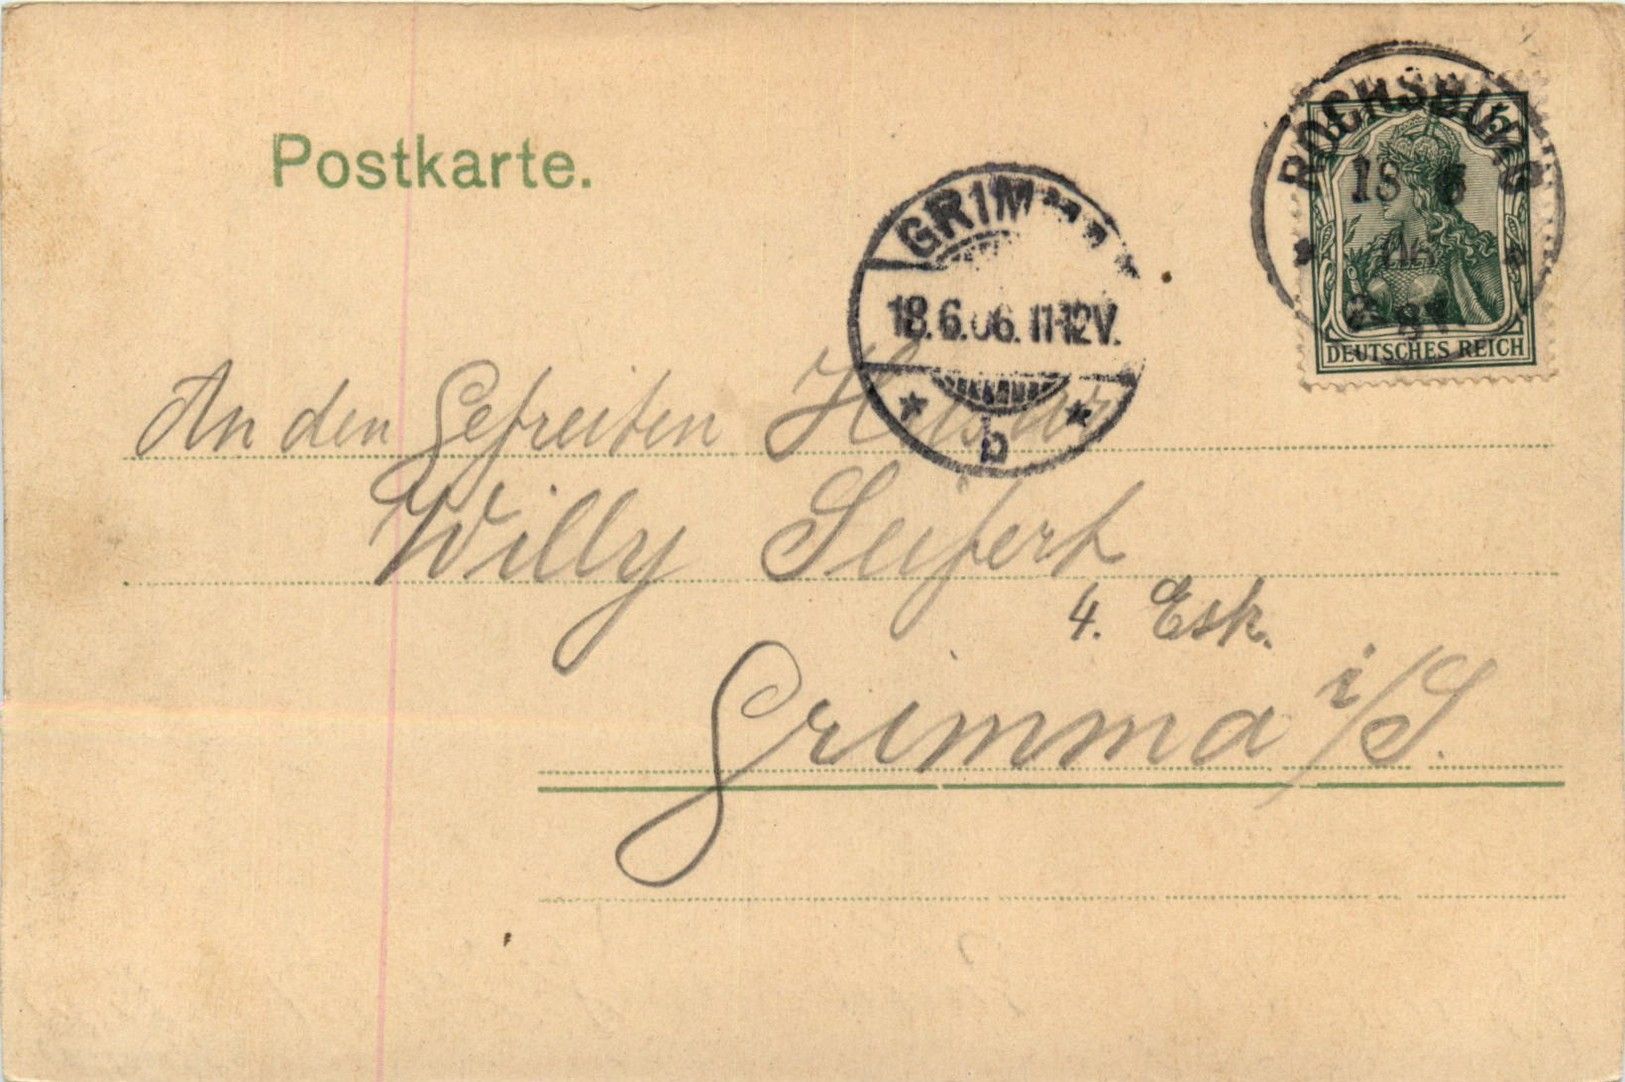 Postkarte.
ROCHSBURG
18 6
06
8V.
5
DEUTSCHES REICH
GRIMMA
18.6.06.11-12V.
b
An den Gefreiten Husar
Willy Seifert
4. Esk.
Grimma i/S.